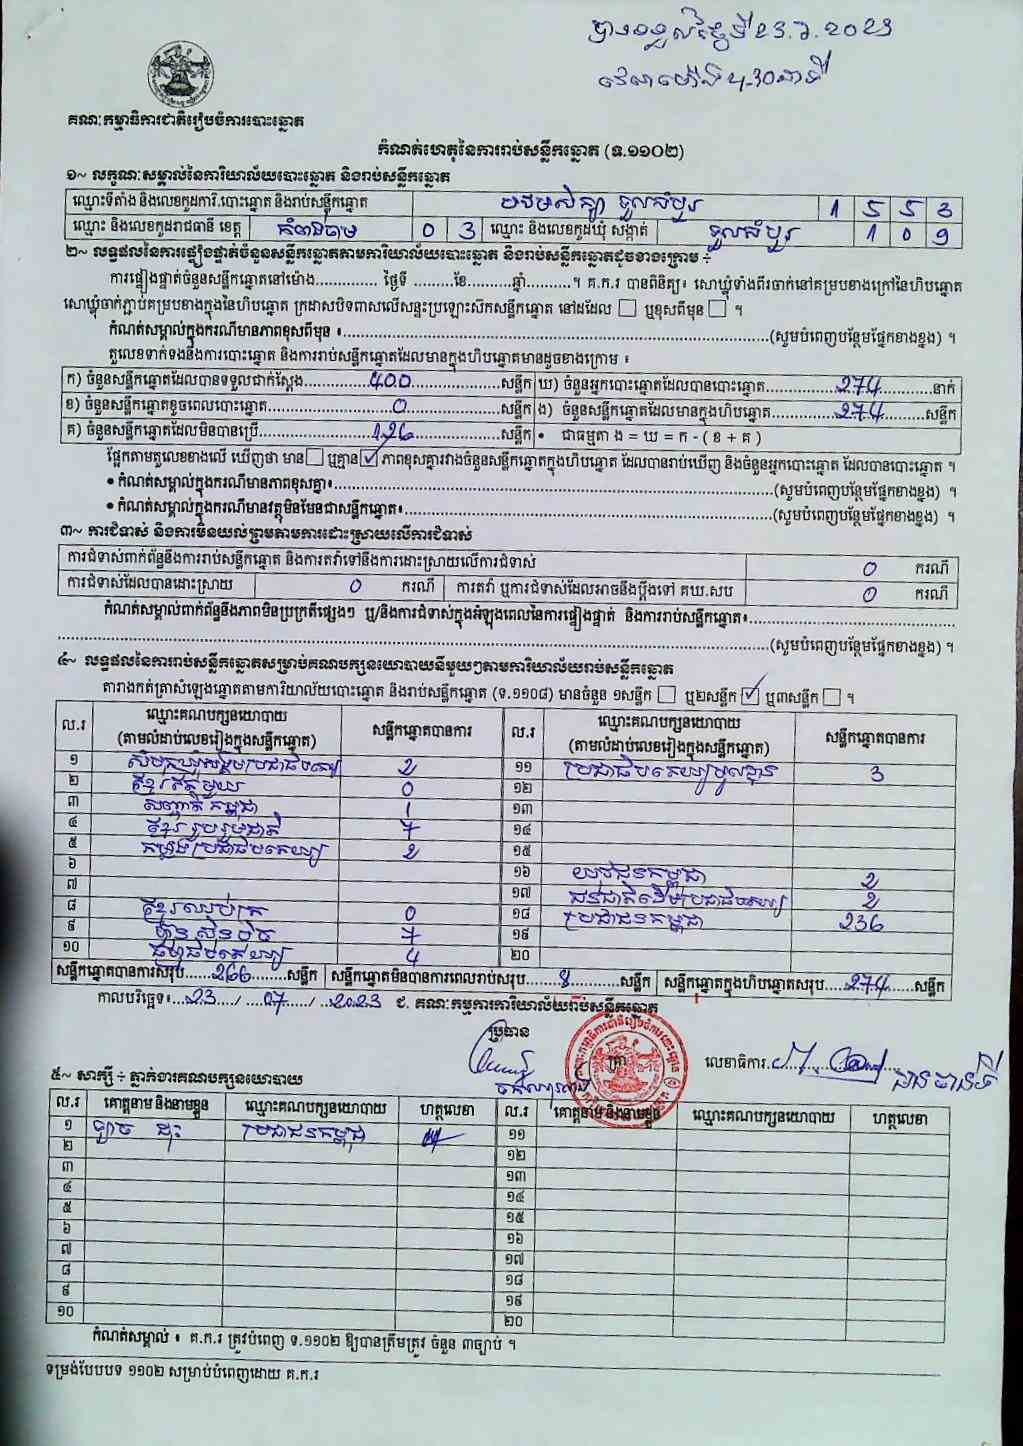 បានទទួលថ្ងៃទី 23.7.2023
វេលាម៉ោង 4-30នាទី
គណៈកម្មាធិការជាតិរៀបចំការបោះឆ្នោត
កំណត់ហេតុនៃការរាប់សន្លឹកឆ្នោត (ទ.១១០២)
១~ លក្ខណៈសម្គាល់នៃការិយាល័យបោះឆ្នោត និងរាប់សន្លឹកឆ្នោត
ឈ្មោះទីតាំង និងលេខកូដការិ.បោះឆ្នោត និងរាប់សន្លឹកឆ្នោត បឋមសិក្សា ទួលសំបួរ 1 5 5 3
ឈ្មោះ និងលេខកូដរាជធានី ខេត្ត កំពង់ចាម 0 3 ឈ្មោះ និងលេខកូដឃុំ សង្កាត់ ទួលសំបួរ 1 0 9
២~ លទ្ធផលនៃការផ្ទៀងផ្ទាត់ចំនួនសន្លឹកឆ្នោតតាមការិយាល័យបោះឆ្នោត និងរាប់សន្លឹកឆ្នោតដូចខាងក្រោម ÷
ការផ្ទៀងផ្ទាត់ចំនួនសន្លឹកឆ្នោតនៅម៉ោង.............. ថ្ងៃទី .........ខែ..........ឆ្នាំ..........។ គ.ក.រ បានពិនិត្យ៖ សោឃ្លុំទាំងពីរចាក់នៅគម្របខាងក្រៅនៃហិបឆ្នោត
សោឃ្លុំចាក់ភ្ជាប់គម្របខាងក្នុងនៃហិបឆ្នោត ក្រដាសបិទពាសលើសន្ទះប្រឡោះស៊កសន្លឹកឆ្នោត នៅដដែល ☐ ឬខុសពីមុន ☐ ។
កំណត់សម្គាល់ក្នុងករណីមានភាពខុសពីមុន ៖..........(សូមបំពេញបន្ថែមផ្នែកខាងខ្នង) ។
តួលេខទាក់ទងនឹងការបោះឆ្នោត និងការរាប់សន្លឹកឆ្នោតដែលមានក្នុងហិបឆ្នោតមានដូចខាងក្រោម ៖
ក) ចំនួនសន្លឹកឆ្នោតដែលបានទទួលជាក់ស្តែង..........400..........សន្លឹក ឃ) ចំនួនអ្នកបោះឆ្នោតដែលបានបោះឆ្នោត..........274..........នាក់
ខ) ចំនួនសន្លឹកឆ្នោតខូចពេលបោះឆ្នោត..........0..........សន្លឹក ង) ចំនួនសន្លឹកឆ្នោតដែលមានក្នុងហិបឆ្នោត..........274..........សន្លឹក
គ) ចំនួនសន្លឹកឆ្នោតដែលមិនបានប្រើ..........126..........សន្លឹក • ជាធម្មតា ង = ឃ = ក - ( ខ + គ )
ផ្អែកតាមតួលេខខាងលើ ឃើញថា មាន ☐ ឬគ្មាន ☑ ភាពខុសគ្នារវាងចំនួនសន្លឹកឆ្នោតក្នុងហិបឆ្នោត ដែលបានរាប់ឃើញ និងចំនួនអ្នកបោះឆ្នោត ដែលបានបោះឆ្នោត ។
• កំណត់សម្គាល់ក្នុងករណីមានភាពខុសគ្នា៖..........(សូមបំពេញបន្ថែមផ្នែកខាងខ្នង) ។
• កំណត់សម្គាល់ក្នុងករណីមានវត្ថុមិនមែនជាសន្លឹកឆ្នោត៖..........(សូមបំពេញបន្ថែមផ្នែកខាងខ្នង) ។
៣~ ការជំទាស់ និងការមិនយល់ព្រមតាមការដោះស្រាយលើការជំទាស់
ការជំទាស់ពាក់ព័ន្ធនឹងការរាប់សន្លឹកឆ្នោត និងការតវ៉ាទៅនឹងការដោះស្រាយលើការជំទាស់ 0 ករណី
ការជំទាស់ដែលបានដោះស្រាយ 0 ករណី ការតវ៉ា ឬការជំទាស់ដែលអាចនឹងប្តឹងទៅ គឃ.សប 0 ករណី
កំណត់សម្គាល់ពាក់ព័ន្ធនឹងភាពមិនប្រក្រតីផ្សេងៗ ឬ/និងការជំទាស់ក្នុងអំឡុងពេលនៃការផ្ទៀងផ្ទាត់ និងការរាប់សន្លឹកឆ្នោត៖..........
..........(សូមបំពេញបន្ថែមផ្នែកខាងខ្នង) ។
៤~ លទ្ធផលនៃការរាប់សន្លឹកឆ្នោតសម្រាប់គណបក្សនយោបាយនីមួយៗតាមការិយាល័យរាប់សន្លឹកឆ្នោត
តារាងកត់ត្រាសំឡេងឆ្នោតតាមការិយាល័យបោះឆ្នោត និងរាប់សន្លឹកឆ្នោត (ទ.១១០៨) មានចំនួន ១សន្លឹក ☐ ឬ២សន្លឹក ☑ ឬ៣សន្លឹក ☐ ។
ល.រ ឈ្មោះគណបក្សនយោបាយ (តាមលំដាប់លេខរៀងក្នុងសន្លឹកឆ្នោត) សន្លឹកឆ្នោតបានការ ល.រ ឈ្មោះគណបក្សនយោបាយ (តាមលំដាប់លេខរៀងក្នុងសន្លឹកឆ្នោត) សន្លឹកឆ្នោតបានការ
១ សំបុកឃ្មុំសង្គមប្រជាធិបតេយ្យ 2 ១១ ប្រជាធិបតេយ្យមូលដ្ឋាន 3
២ ខ្មែរតែមួយ 0 ១២
៣ សញ្ជាតិកម្ពុជា 1 ១៣
៤ ខ្មែររួបរួមជាតិ 7 ១៤
៥ កម្លាំងប្រជាធិបតេយ្យ 2 ១៥
៦ ១៦ យុវជនកម្ពុជា 2
៧ ១៧ ជនជាតិដើមប្រជាធិបតេយ្យ 2
៨ ខ្មែរឈប់ក្រ 0 ១៨ ប្រជាជនកម្ពុជា 236
៩ ហ៊្វុនស៊ិនប៉ិច 7 ១៩
១០ ធម្មាធិបតេយ្យ 4 ២០
សន្លឹកឆ្នោតបានការសរុប......266......សន្លឹក សន្លឹកឆ្នោតមិនបានការពេលរាប់សរុប......8......សន្លឹក សន្លឹកឆ្នោតក្នុងហិបឆ្នោតសរុប......274......សន្លឹក
កាលបរិច្ឆេទ៖...23.../...07.../...2023 ជ. គណៈកម្មការការិយាល័យរាប់សន្លឹកឆ្នោត
ប្រធាន
ត្រា
លេខាធិការ
៥~ សាក្សី ÷ ភ្នាក់ងារគណបក្សនយោបាយ
ល.រ គោត្តនាម និងនាមខ្លួន ឈ្មោះគណបក្សនយោបាយ ហត្ថលេខា ល.រ គោត្តនាម និងនាមខ្លួន ឈ្មោះគណបក្សនយោបាយ ហត្ថលេខា
១ ប្រជាជនកម្ពុជា ១១
២ ១២
៣ ១៣
៤ ១៤
៥ ១៥
៦ ១៦
៧ ១៧
៨ ១៨
៩ ១៩
១០ ២០
កំណត់សម្គាល់ ៖ គ.ក.រ ត្រូវបំពេញ ទ.១១០២ ឱ្យបានត្រឹមត្រូវ ចំនួន ៣ច្បាប់ ។
ទម្រង់បែបបទ ១១០២ សម្រាប់បំពេញដោយ គ.ក.រ